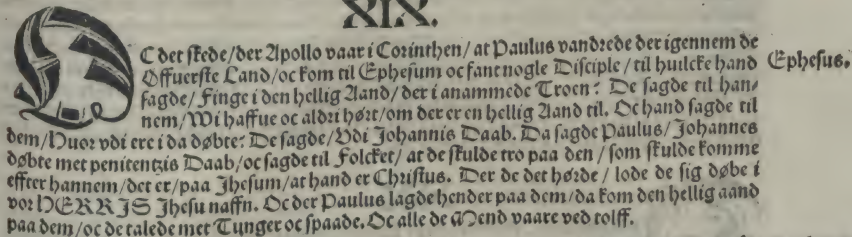 XIX.
OC det skede/der Apollo vaar i Corinthen/ at Paulus vandrede der igennem de
Offuerste Land/oc kom til Ephesum oc fant nogle Disciple/ til huilcke hand
Ephesus.
sagde/ Finge i den hellig Aand/der i anammede Troen? De sagde til han-
nem/Wi haffue oc aldri hørt/om der er en hellig Aand til. Oc hand sagde til
dem/Huor vdi ere i da døbte? De sagde/Vdi Johannis Daab. Da sagde Paulus/Johannes
døbte met penitentzis Daab/oc sagde til Folcket/ at de skulde tro paa den/ som skulde komme
effter hannem/det er/paa Jhesum/at hand er Christus. Der de det hørde/ lode de sig døbe i
vor HERRIS Jhesu naffn. Oc der Paulus lagde hender paa dem/da kom den hellig aand
paa dem/oc de talede met Tunger oc spaade. Oc alle de Mend vaare ved tolff.